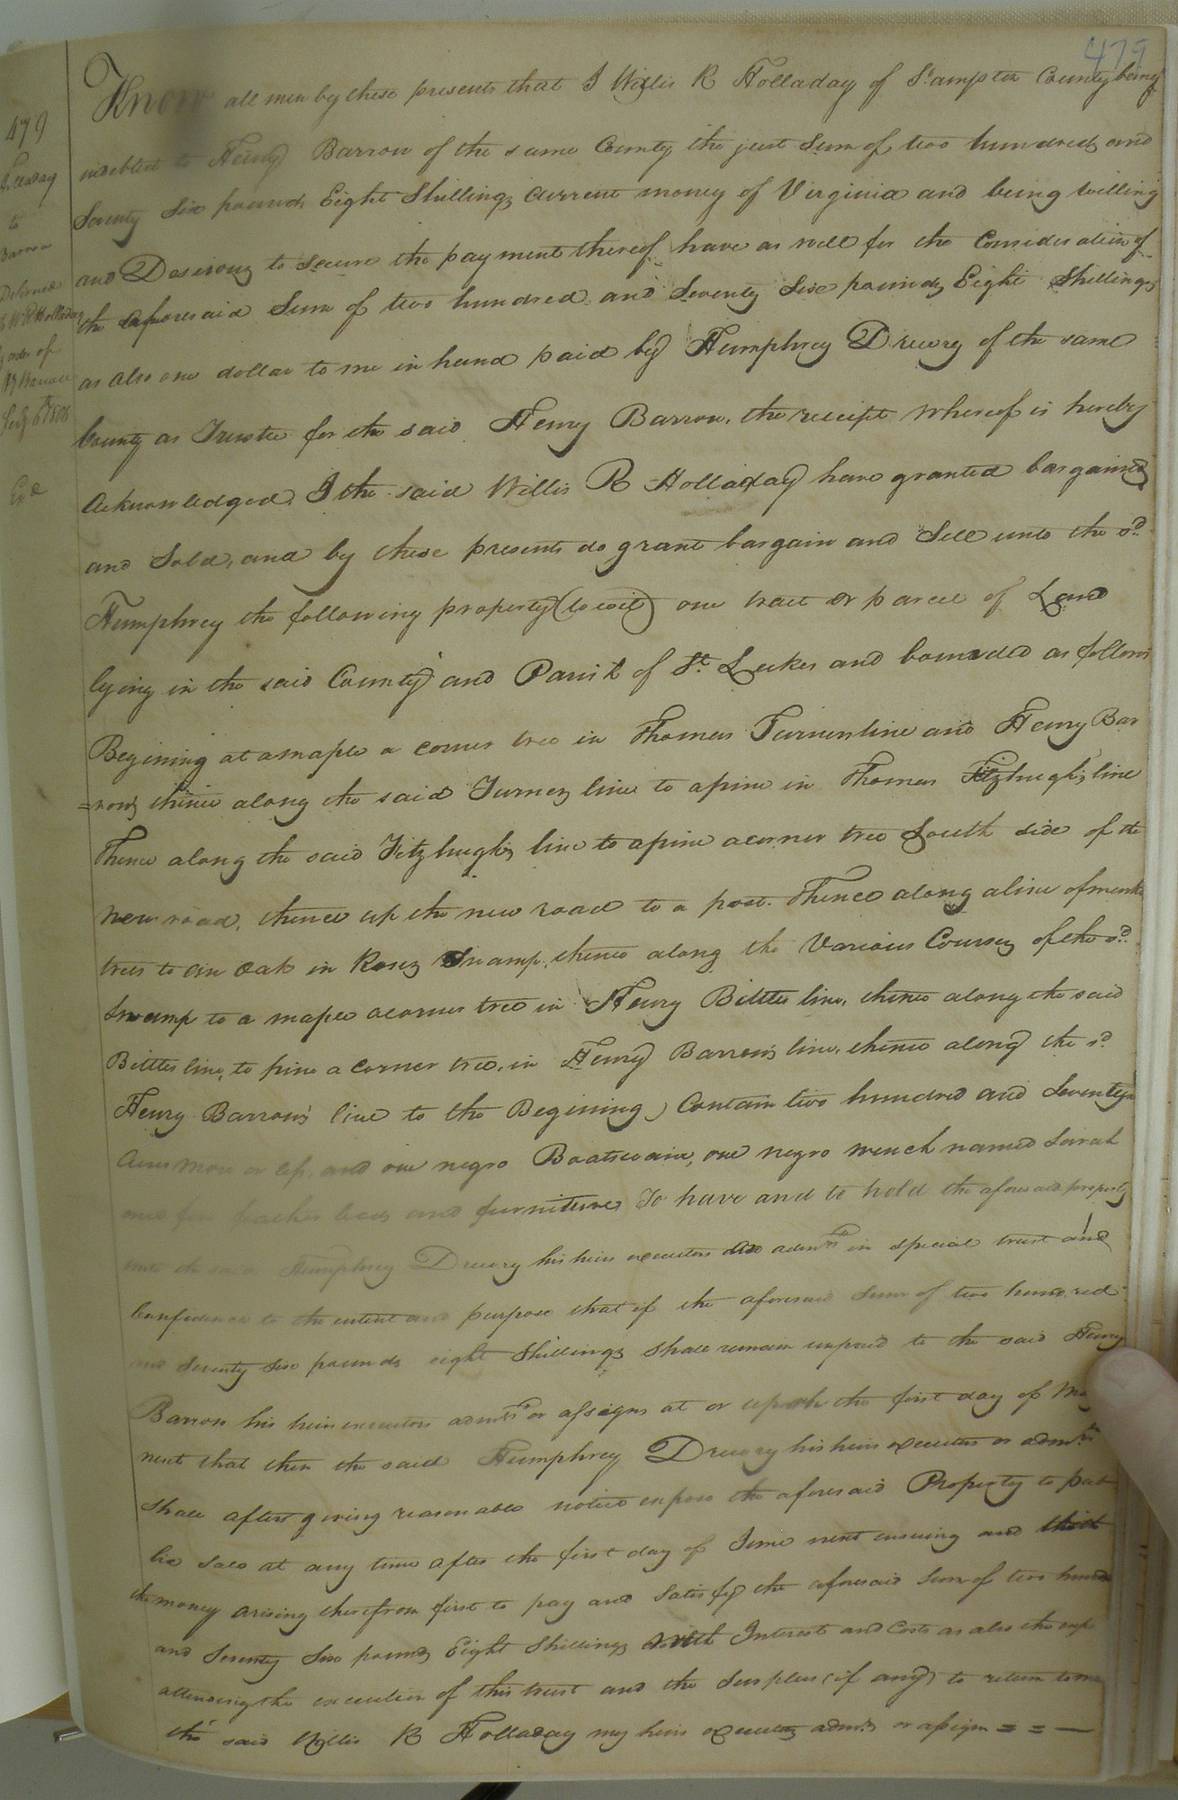 479
Know all men by these presents that I Willis R Holladay of S.ampton County being
indebted to Henry Barrow of the same County the just Sum of two hundred and
Seventy Six pounds Eight Shillings Current money of Virginia and being willing
and Desirous to secure the payment thereof have as well for the Consideration of
the aforesaid Sum of two hundred and Seventy Six pounds Eight Shillings
as also one dollar to me in hand paid by Humphrey Drewry of the same
County as Trustee for the said Henry Barrow, the receipt whereof is hereby
Acknowledged, I the said Willis R Holladay have granted bargained
and Sold, and by these presents do grant bargain and Sell unto the sd
Humphrey the following property (to wit) one tract or parcel of Land
lying in the said County and Parish of St. Lukes and bounded as follows
Begining at a maple a corner tree in Thomas Turners line and Henry Bar
=rows thence along the said Turners line to a pine in Thomas Fitzhugh's line
Thence along the said Fitzhughs line to a pine a corner tree South side of the
new road, thence up the new road to a post. Thence along a line of markd
trees to an oak in Rosey Swamp, thence along the Various Courses of the sd
Swamp to a maple a corner tree in Henry Bittles line, thence along the said
Bittles line, to pine a corner tree, in Henry Barrow's line, thence along the sd
Henry Barrow's line to the Begining, Contain two hundred and Seventy
Acres more or less, and one negro Boatswain, one negro wench named Sarah
and feather beds and furniture To have and to hold the aforesaid property
unto the said Humphrey Drewry his heirs executors and admrs in special trust and
Confidence to the intent and purpose that if the aforesaid Sum of two hundred
and Seventy Six pounds eight Shillings shall remain unpaid to the said Henry
Barrow his heirs executors admrs or assigns at or upon the first day of May
next that then the said Humphrey Drewry his heirs executors or admrs
shall after giving reasonable notice expose the aforesaid Property to pub
lic sale at any time after the first day of June next ensuing and
the money arising therefrom first to pay and Satisfy the aforesaid Sum of two hundred
and Seventy Six pounds Eight Shillings with Interest and Costs as also the exps
attending the execution of this trust and the Surplus (if any) to return to me
the said Willis R Holladay my heirs executors admrs or assigns = = —
479
Holladay
to
Barrow
Delivered
W R Holladay
order of
H Barrow
1808
Exd